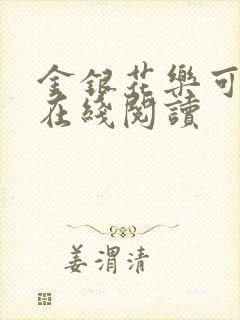 金銀花樂可
在綫閱讀
姜渭清